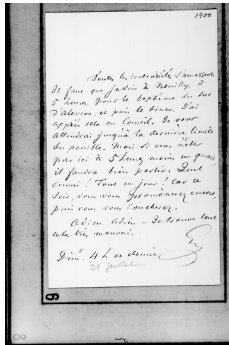 1400
Toutes les contrariétés s'amassent
Il faut que je sois à Neuilly, à
5 heures. Pour le baptême du duc
d'alençon, et puis le diner. J'ai
appris cela au Conseil. Je vous
attendrai jusqu'à la dernière limite
du possible. Mais si vous n'êtes
pas ici à 5 heures moins un quart,
il faudra bien partir. Quel
ennui ! Tout un jour ! Car ce
soir, vous vous promènerez encore,
puis vous vous coucherez.
Adieu. Adieu. Je trouve tout
cela très mauvais.
Dim. 4 h et demie
21 juillet
9